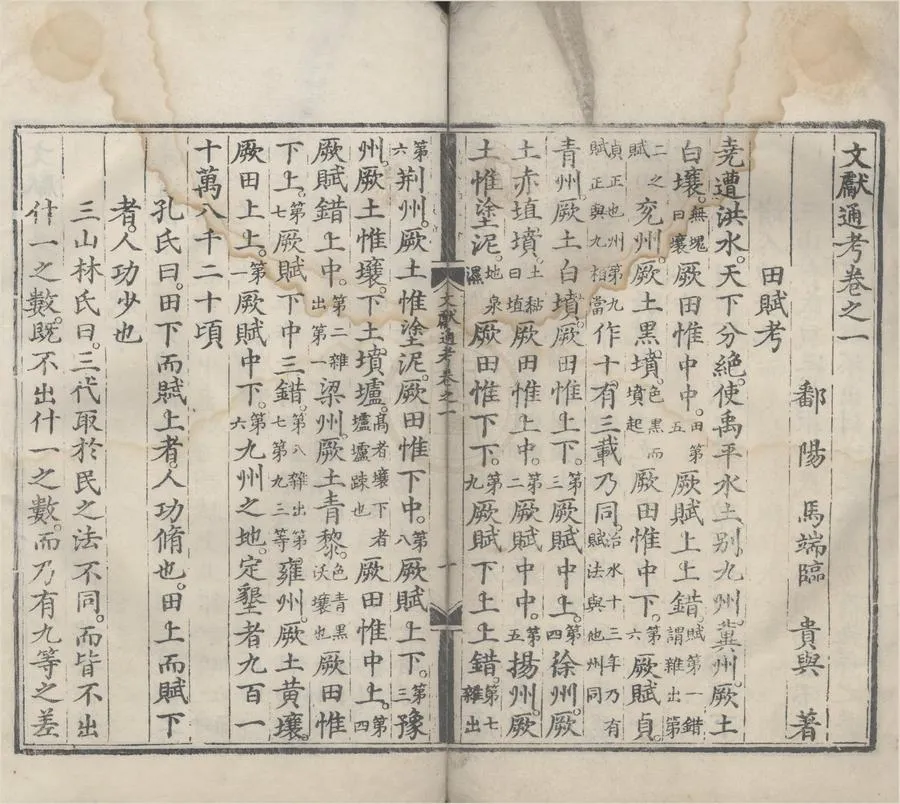 文獻通考卷之一
鄱陽 馬端臨 貴與 著
田賦考
堯遭洪水。天下分絕。使禹平水土別九州。冀州。厥土
白壤。無塊曰壤厥田惟中中。田第五厥賦上上錯。賦第一錯謂雜出第
二之賦兗州。厥土黑墳。色黑而墳起厥田惟中下。第六厥賦貞
貞正也州第九賦正與九相當作十有三載乃同。治水十三年乃有賦法與他州同
青州。厥土白墳。厥田惟上下。第三厥賦中上。第四徐州。厥
土赤埴墳。土黏曰埴厥田惟上中。第二厥賦中中。第五揚州。厥
土惟塗泥。地泉濕厥田惟下下。第九厥賦下上上錯。第七雜出
文獻通考卷之一
一
第六荊州。厥土惟塗泥。厥田惟下中。第八厥賦上下。第三豫
州。厥土惟壤。下土墳壚。高者壤下者壚壚疎也厥田惟中上。第四
厥賦錯上中。第二雜出第一梁州。厥土青黎。色青黑沃壤也厥田惟
下上。第七厥賦下中三錯。第八雜出第七第九三等雍州。厥土黃壤。
厥田上上。第一厥賦中下。第六九州之地。定墾者九百一
十萬八千二十頃
孔氏曰。田下而賦上者。人功脩也。田上而賦下
者。人功少也
三山林氏曰。三代取於民之法不同。而皆不出
什一之數。旣不出什一之數。而乃有九等之差